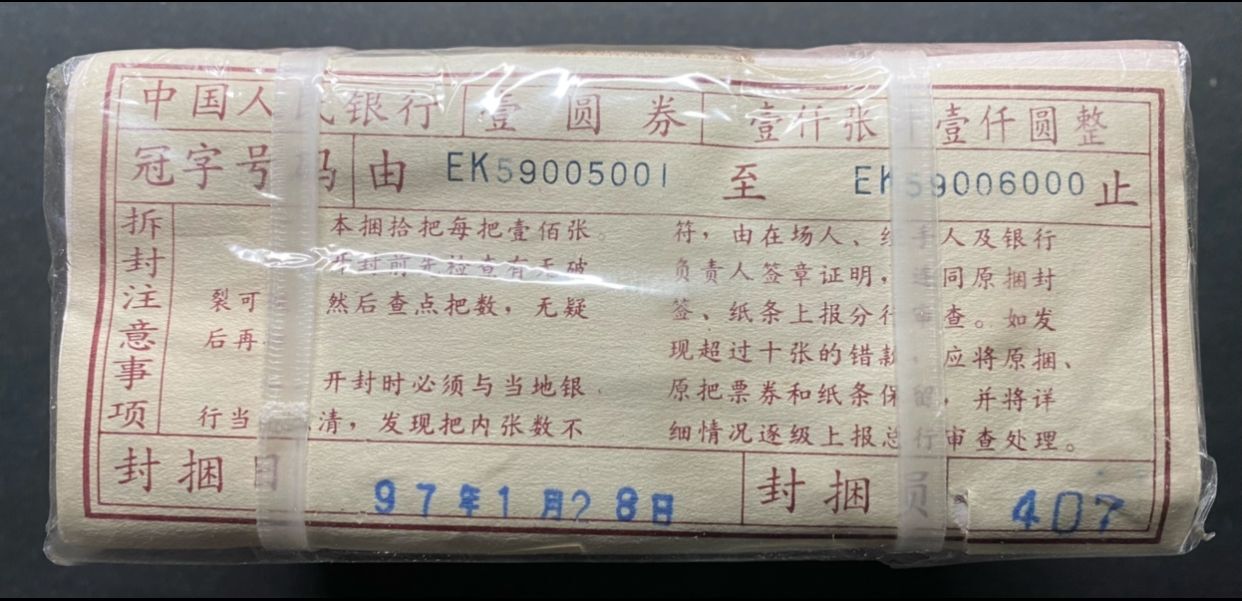 中国人民银行 壹圆券 壹仟张 壹仟圆整
冠字号码 由 EK59005001 至 EK59006000 止
拆封注意事项
本捆拾把每把壹佰张。
开封前先检查有无破
裂可 然后查点把数，无疑
后再
开封时必须与当地银
行当 清，发现把内张数不
符，由在场人、经手人及银行
负责人签章证明，连同原捆封
签、纸条上报分行审查。如发
现超过十张的错款，应将原捆、
原把票券和纸条保留，并将详
细情况逐级上报总行审查处理。
封捆日 97年1月28日 封捆员 407